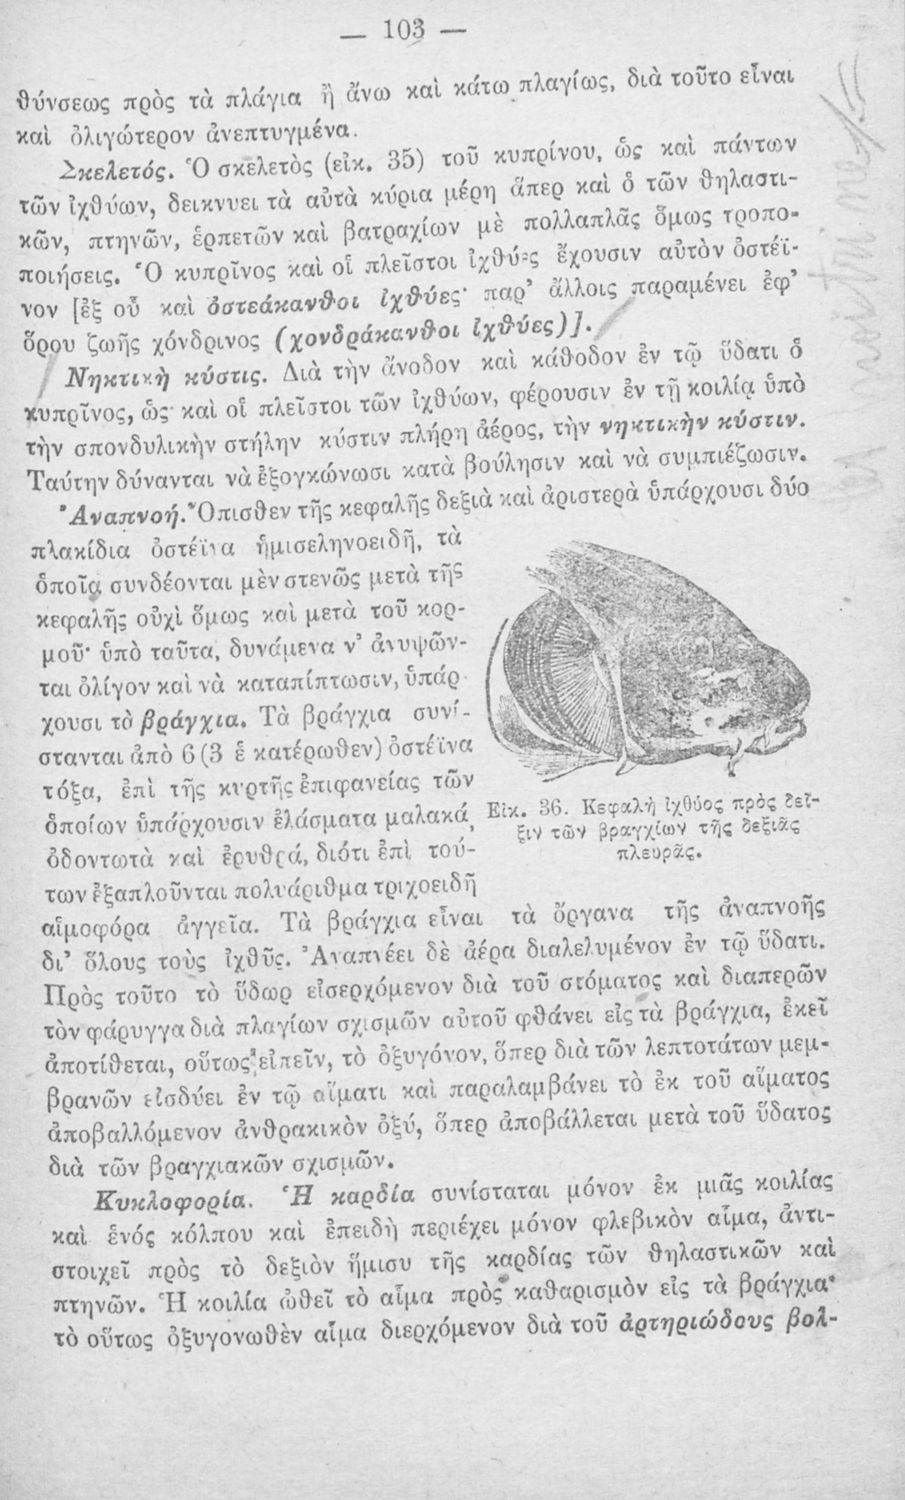 — 103 —
θύνσεως πρὸς τὰ πλάγια ἢ ἄνω καὶ κάτω πλαγίως, διὰ τοῦτο εἶναι
καὶ ὀλιγώτερον ἀνεπτυγμένα.
Σκελετός. Ὁ σκελετὸς (εἰκ. 35) τοῦ κυπρίνου, ὡς καὶ πάντων
τῶν ἰχθύων, δεικνυει τὰ αὐτὰ κύρια μέρη ἅπερ καὶ ὁ τῶν θηλαστι-
κῶν, πτηνῶν, ἑρπετῶν καὶ βατραχίων μὲ πολλαπλᾶς ὅμως τροπο-
ποιήσεις. Ὁ κυπρῖνος καὶ οἱ πλεῖστοι ἰχθύες ἔχουσιν αὐτὸν ὀστέϊ-
νον [ἐξ οὗ καὶ ὀστεάκανθοι ἰχθύες· παρ’ ἄλλοις παραμένει ἐφ’
ὅρου ζωῆς χόνδρινος (χονδράκανθοι ἰχθύες)].
Νηκτικὴ κύστις. Διὰ τὴν ἄνοδον καὶ κάθοδον ἐν τῷ ὕδατι ὁ
κυπρῖνος, ὡς καὶ οἱ πλεῖστοι τῶν ἰχθύων, φέρουσιν ἐν τῇ κοιλίᾳ ὑπὸ
τὴν σπονδυλικὴν στήλην κύστιν πλήρη ἀέρος, τὴν νηκτικὴν κύστιν.
Ταύτην δύνανται νὰ ἐξογκώνωσι κατὰ βούλησιν καὶ νὰ συμπιέζωσιν.
Ἀναπνοή. Ὄπισθεν τῆς κεφαλῆς δεξιὰ καὶ ἀριστερὰ ὑπάρχουσι δύο
πλακίδια ὀστέϊνα ἡμισεληνοειδῆ, τὰ
ὁποῖα συνδέονται μὲν στενῶς μετὰ τῆς
κεφαλῆς οὐχὶ ὅμως καὶ μετὰ τοῦ κορ-
μοῦ· ὑπὸ ταῦτα, δυνάμενα ν’ ἀνυψῶν-
ται ὀλίγον καὶ νὰ καταπίπτωσιν, ὑπάρ
χουσι τὸ βράγχια. Τὰ βράγχια συνί-
στανται ἀπὸ 6 (3 ἑ κατέρωθεν) ὀστέϊνα
τόξα, ἐπὶ τῆς κυρτῆς ἐπιφανείας τῶν
ὁποίων ὑπάρχουσιν ἐλάσματα μαλακά,
ὀδοντωτὰ καὶ ἐρυθρά, διότι ἐπὶ τού-
των ἐξαπλοῦνται πολυάριθμα τριχοειδῆ
αἱμοφόρα ἀγγεῖα. Τὰ βράγχια εἶναι τὰ ὄργανα τῆς ἀναπνοῆς
δι’ ὅλους τοὺς ἰχθῦς. Ἀναπνέει δὲ ἀέρα διαλελυμένον ἐν τῷ ὕδατι.
Πρὸς τοῦτο τὸ ὕδωρ εἰσερχόμενον διὰ τοῦ στόματος καὶ διαπερῶν
τὸν φάρυγγα διὰ πλαγίων σχισμῶν αὐτοῦ φθάνει εἰς τὰ βράγχια, ἐκεῖ
ἀποτίθεται, οὕτως εἰπεῖν, τὸ ὀξυγόνον, ὅπερ διὰ τῶν λεπτοτάτων μεμ-
βρανῶν εἰσδύει ἐν τῷ αἵματι καὶ παραλαμβάνει τὸ ἐκ τοῦ αἵματος
ἀποβαλλόμενον ἀνθρακικὸν ὀξύ, ὅπερ ἀποβάλλεται μετὰ τοῦ ὕδατος
διὰ τῶν βραγχιακῶν σχισμῶν.
Κυκλοφορία. Ἡ καρδία συνίσταται μόνον ἐκ μιᾶς κοιλίας
καὶ ἑνός κόλπου καὶ ἐπειδὴ περιέχει μόνον φλεβικὸν αἷμα, ἀντι-
στοιχεῖ πρὸς τὸ δεξιὸν ἥμισυ τῆς καρδίας τῶν θηλαστικῶν καὶ
πτηνῶν. Ἡ κοιλία ὠθεῖ τὸ αἷμα πρὸς καθαρισμὸν εἰς τὰ βράγχια·
τὸ οὕτως ὀξυγονωθὲν αἷμα διερχόμενον διὰ τοῦ ἀρτηριώδους βολ-
Εἰκ. 36. Κεφαλὴ ἰχθύος πρὸς δεῖ-
ξιν τῶν βραγχίων τῆς δεξιᾶς
πλευρᾶς.